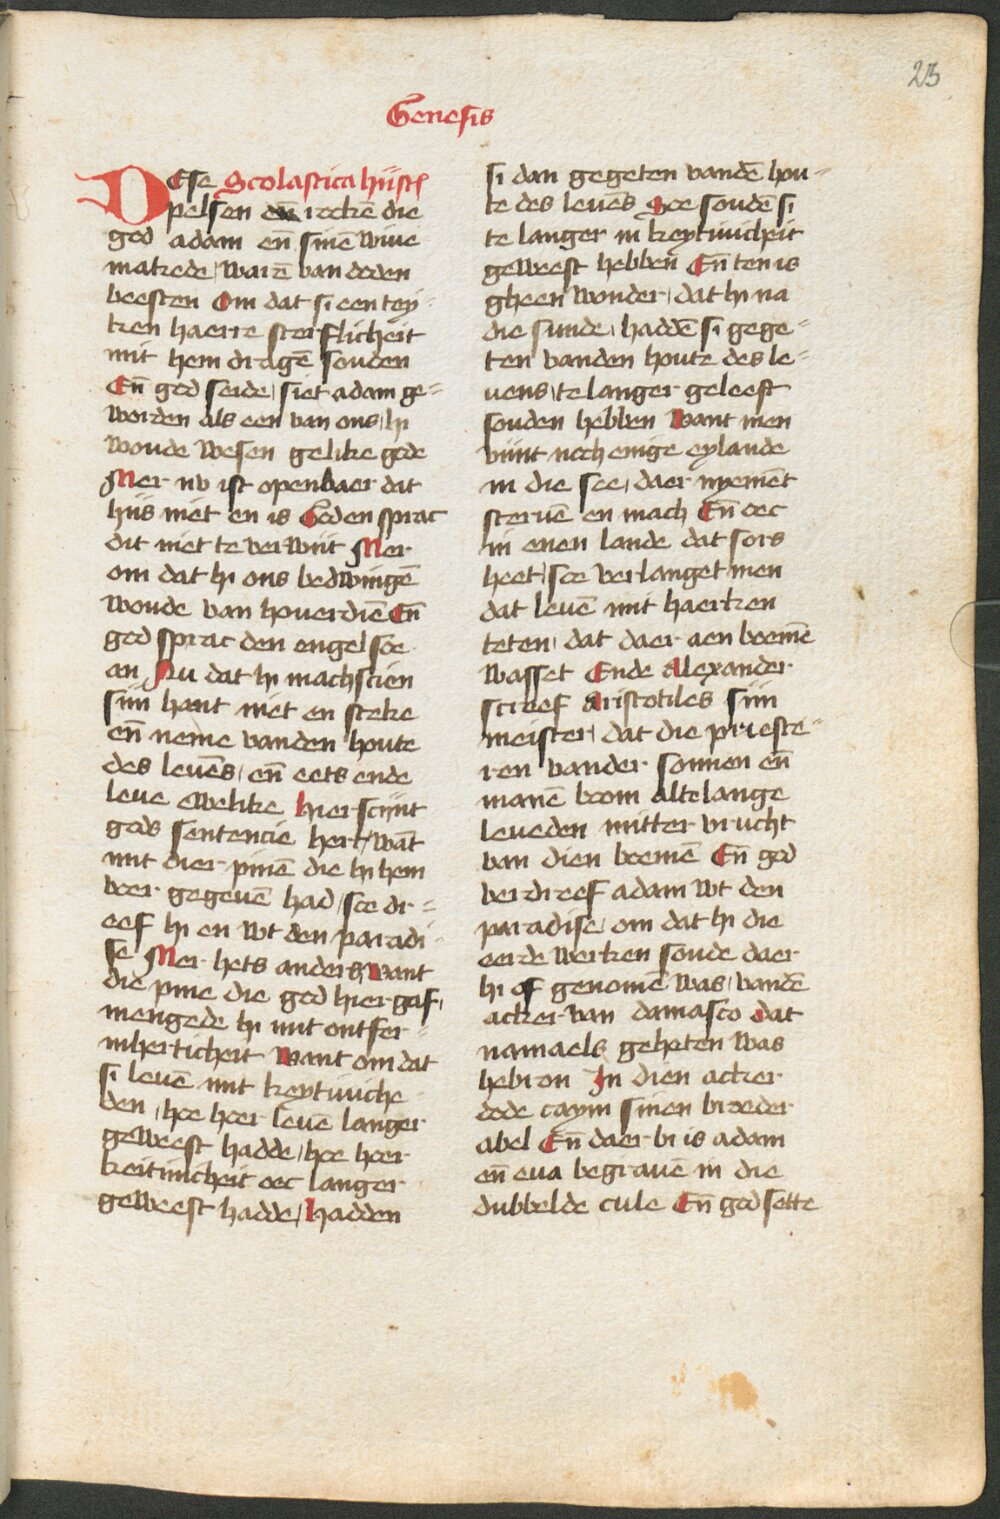 23
Genesis
DEse Scolastica hiistı
pelsen en̄ rocke͞ die
god adam en̄ sine͞ wiue
makede, ware͞ van doden
beesten Om dat si een tey-
ken haerre sterflicheit
mit hem drage͞ souden
En̄ god seide, siet adam ge-
worden als een van ons, hi
woude wesen gelike gode
Mer nv ist openbaer dat
hiis niet en is God en sprac
dit niet te verwiit Mer
om dat hi ons bedwinge͞
woude van houerdie͞ En̄
god sprac den engel soe
an Nu dat hi machscien
siin hant niet en steke
en̄ neme vanden houte
des leue͞s, en̄ eets ende
leue ewelike Hier sciint
gods sentencie hert, wa͞t
mit dier pine͞ die hi hem
voer gegeue͞ had, soe dr-
eef hi en wt den paradi-
se Mer hets anders, want
die pine die god hier gaf,
mengede hi mit ontfer-
mherticheit Want om dat
si leue͞ mit keytiuiche-
den, hoe hoer leue͞ langer
geweest hadde, hoe hoer
keitiuicheit oec langer
geweest hadde, Hadden
si dan gegeten vande͞ hou-
te des leue͞s Soe soude͞ si
te langer in keytiuicheit
geweest hebben En̄ ten is
gheen wonder, dat hi na
die sunde, hadde͞ si gege-
ten vanden houte des le-
uens, te langer geleeft
souden hebben Want men
viint noch enige eylande
in die see, daer nyeme͞t
sterue͞ en mach En̄ oec
in enen lande dat sors
heet, soe verlanget men
dat leue͞ mit haerken
teten, dat daer aen boeme͞
wasset Ende Alexander
screef Aristotiles siin
meister, dat die prieste-
ren vander sonnen en̄
mane͞ boom alte lange
leueden mitter vrucht
van dien boeme͞ En̄ god
verdreef adam wt den
paradise, om dat hi die
eerde werken soude daer
hi of genome͞ was, vande͞
acker van damasco Dat
namaels geheten was
hebron In dien acker
dode caym sinen broeder
abel En̄ daer bi is adam
en̄ eua begraue͞ in die
dubbelde cule En̄ god sette